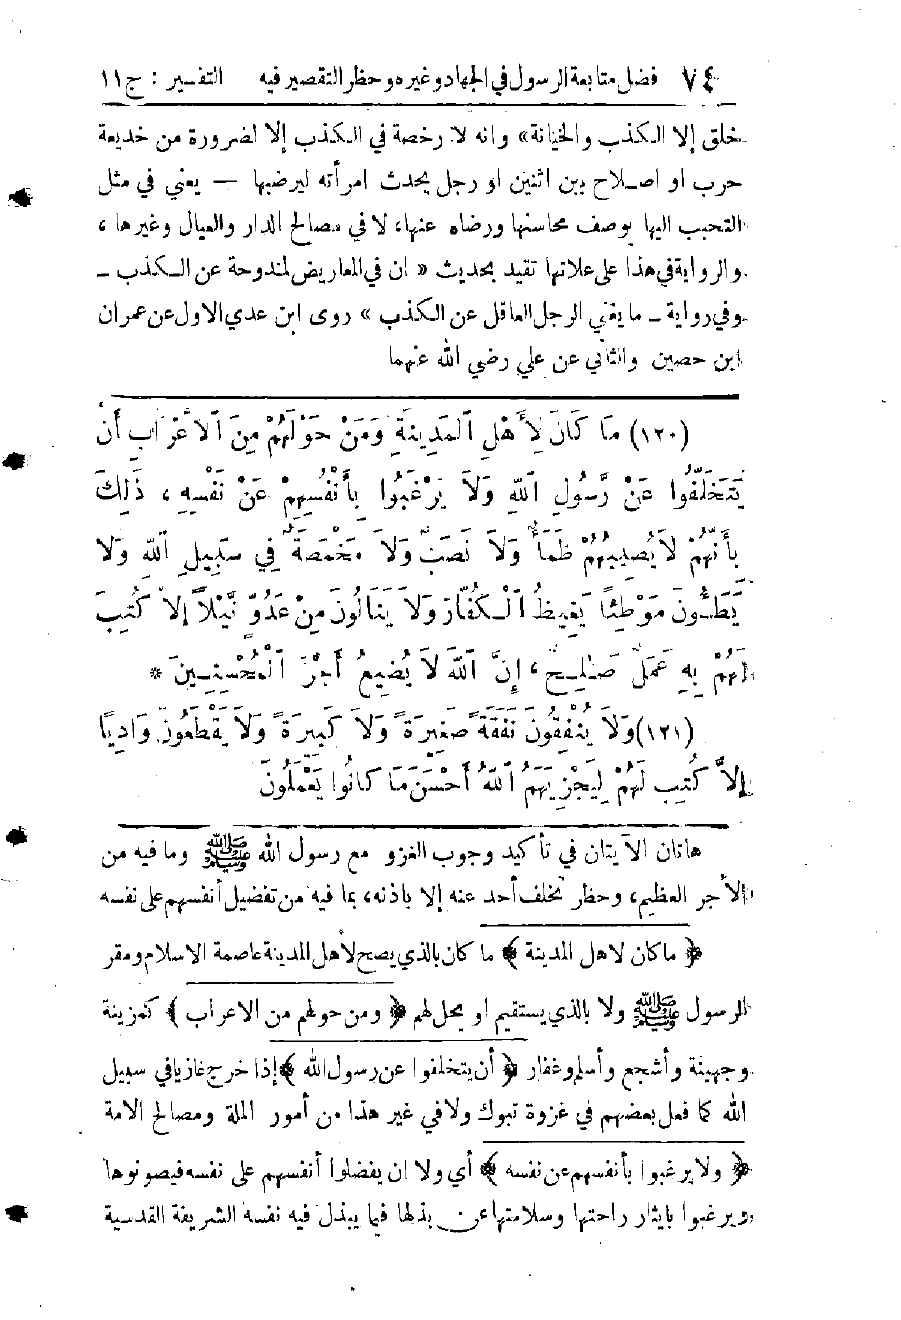 ٧٤ فضل متابعة الرسول في الجهاد وغيره وحظر التقصير فيه التفسير : ج ١١
خلق إلا الكذب والخيانة» وانه لا رخصة في الكذب إلا لضرورة من خديعة
حرب او اصلاح بين اثنين او رجل يحدث امرأته ليرضيها — يعني في مثل
التحبب اليها بوصف محاسنها ورضاه عنها، لا في مصالح الدار والعيال وغيرها ،
والرواية في هذا على علاتها تقيد بحديث « ان في المعاريض لمندوحة عن الكذب —
وفي رواية — ما يغني الرجل العاقل عن الكذب » روى ابن عدي الاول عن عمران
ابن حصين والثاني عن علي رضي الله عنهما
(١٢٠) مَا كَانَ لِأَهْلِ ٱلْمَدِينَةِ وَمَنْ حَوْلَهُمْ مِنَ ٱلْأَعْرَابِ أَنْ
يَتَخَلَّفُوا عَنْ رَسُولِ ٱللهِ وَلَا يَرْغَبُوا بِأَنْفُسِهِمْ عَنْ نَفْسِهِ ، ذَلِكَ
بِأَنَّهُمْ لَا يُصِيبُهُمْ ظَمَأٌ وَلَا نَصَبٌ وَلَا مَخْمَصَةٌ فِي سَبِيلِ ٱللهِ وَلَا
يَطَئُونَ مَوْطِئًا يَغِيظُ ٱلْكُفَّارَ وَلَا يَنَالُونَ مِنْ عَدُوٍّ نَيْلًا إِلَّا كُتِبَ
لَهُمْ بِهِ عَمَلٌ صَالِحٌ ، إِنَّ ٱللهَ لَا يُضِيعُ أَجْرَ ٱلْمُحْسِنِينَ *
(١٢١) وَلَا يُنْفِقُونَ نَفَقَةً صَغِيرَةً وَلَا كَبِيرَةً وَلَا يَقْطَعُونَ وَادِيًا
إِلَّا كُتِبَ لَهُمْ لِيَجْزِيَهُمُ ٱللهُ أَحْسَنَ مَا كَانُوا يَعْمَلُونَ
هاتان الآيتان في تأكيد وجوب الغزو مع رسول الله ﷺ وما فيه من
الأجر العظيم، وحظر تخلف أحد عنه إلا باذنه، بما فيه من تفضيل أنفسهم على نفسه
﴿ ما كان لاهل المدينة ﴾ ما كان بالذي يصح لأهل المدينة عاصمة الاسلام ومقر
الرسول ﷺ ولا بالذي يستقيم او يحل لهم ﴿ ومن حولهم من الاعراب ﴾ كمزينة
وجهينة وأشجع وأسلم وغفار ﴿ أن يتخلفوا عن رسول الله ﴾ إذا خرج غازيا في سبيل
الله كما فعل بعضهم في غزوة تبوك ولا في غير هذا من أمور الملة ومصالح الامة
﴿ ولا يرغبوا بأنفسهم عن نفسه ﴾ أي ولا ان يفضلوا أنفسهم على نفسه فيصونوها
ويرغبوا بايثار راحتها وسلامتها عن بذلها فيما يبذل فيه نفسه الشريفة القدسية